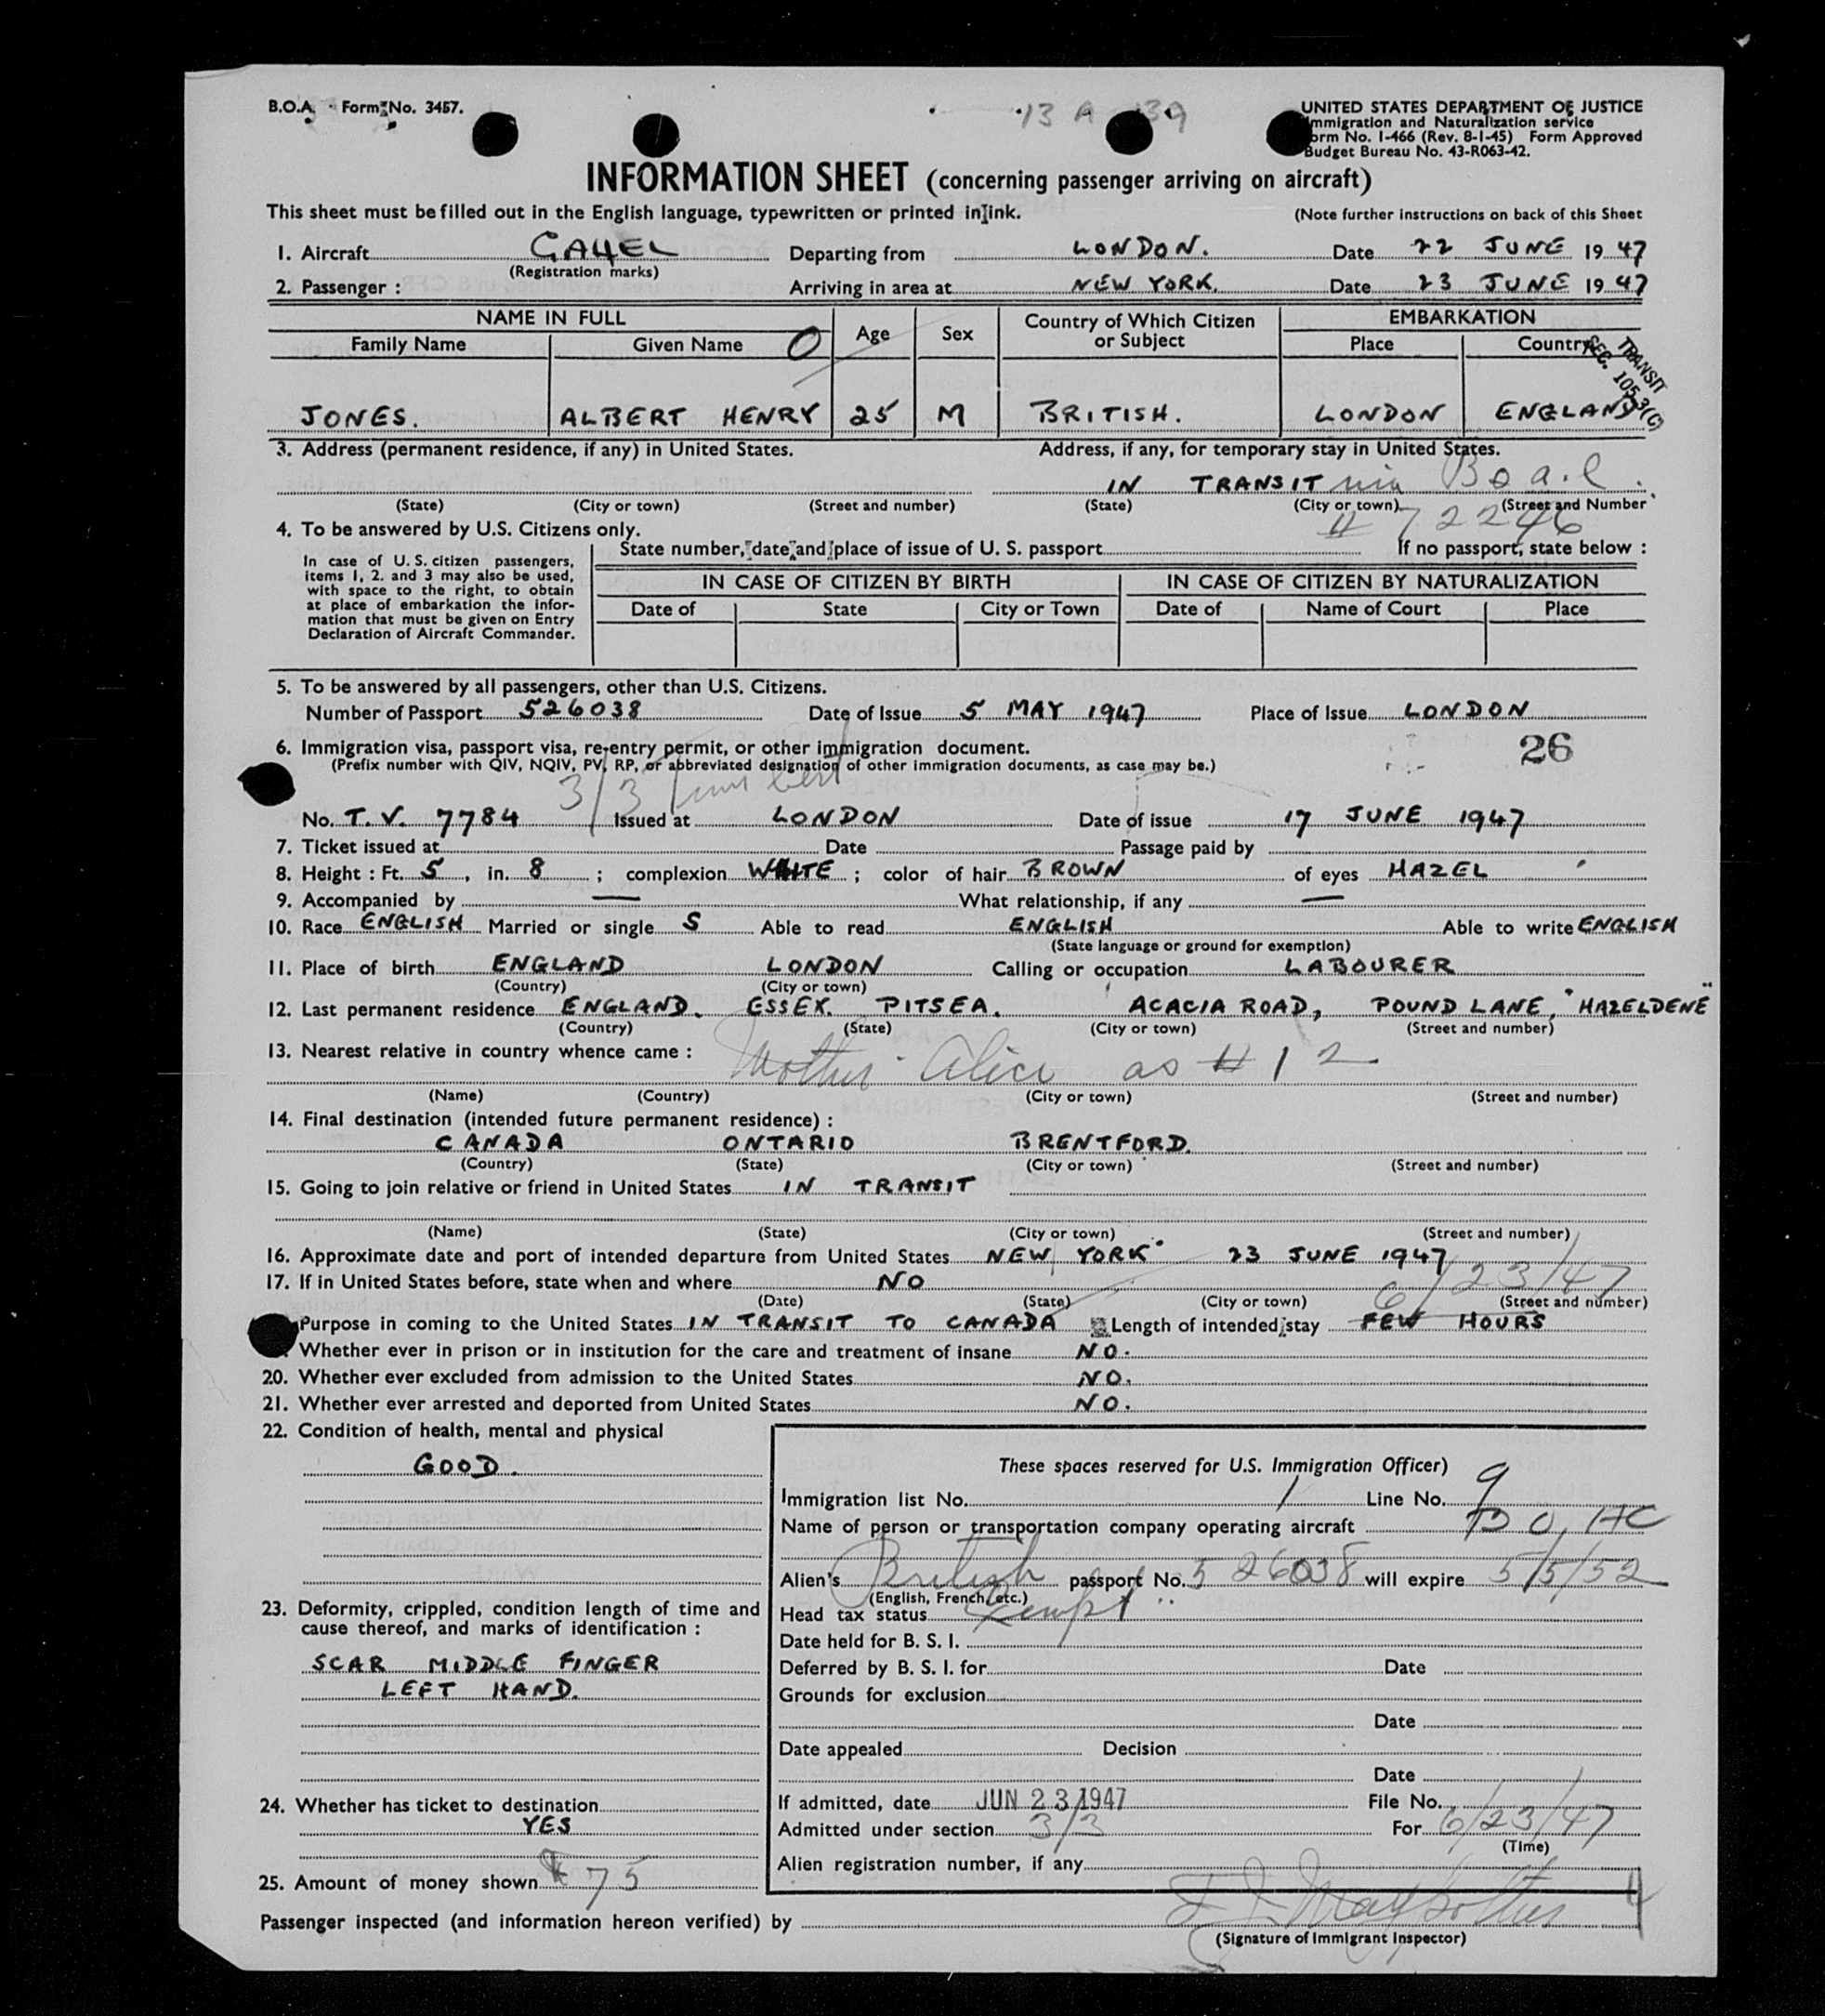 B.O.A. Form No. 3457.
13 A 39
UNITED STATES DEPARTMENT OF JUSTICE
Immigration and Naturalization service
Form No. I-466 (Rev. 8-1-45) Form Approved
Budget Bureau No. 43-R063-42.
INFORMATION SHEET (concerning passenger arriving on aircraft)
This sheet must be filled out in the English language, typewritten or printed in ink. (Note further instructions on back of this Sheet
1. Aircraft GAHEL Departing from LONDON. Date 22 JUNE 1947
(Registration marks)
2. Passenger : Arriving in area at NEW YORK. Date 23 JUNE 1947
NAME IN FULL Age Sex Country of Which Citizen or Subject EMBARKATION
Family Name Given Name Place Country
TRANSIT
SEC. 105.3(C)
JONES. ALBERT HENRY 25 M BRITISH. LONDON ENGLAND
3. Address (permanent residence, if any) in United States. Address, if any, for temporary stay in United States.
IN TRANSIT via
(State) (City or town) (Street and number) (State) (City or town) (Street and Number
# 72246
4. To be answered by U.S. Citizens only.
In case of U.S. citizen passengers, items 1, 2. and 3 may also be used, with space to the right, to obtain at place of embarkation the information that must be given on Entry Declaration of Aircraft Commander.
State number, date and place of issue of U. S. passport If no passport, state below :
IN CASE OF CITIZEN BY BIRTH IN CASE OF CITIZEN BY NATURALIZATION
Date of State City or Town Date of Name of Court Place
5. To be answered by all passengers, other than U.S. Citizens.
Number of Passport 526038 Date of Issue 5 MAY 1947 Place of Issue LONDON
6. Immigration visa, passport visa, re-entry permit, or other immigration document. 26
(Prefix number with QIV, NQIV, PV, RP, or abbreviated designation of other immigration documents, as case may be.)
3/3
No. T. V. 7784 Issued at LONDON Date of issue 17 JUNE 1947
7. Ticket issued at Date Passage paid by
8. Height : Ft. 5, in. 8 ; complexion WHITE ; color of hair BROWN of eyes HAZEL
9. Accompanied by — What relationship, if any —
10. Race ENGLISH Married or single S Able to read ENGLISH Able to write ENGLISH
(State language or ground for exemption)
11. Place of birth ENGLAND LONDON Calling or occupation LABOURER
(Country) (City or town)
12. Last permanent residence ENGLAND. ESSEX. PITSEA. ACACIA ROAD, POUND LANE, "HAZELDENE"
(Country) (State) (City or town) (Street and number)
13. Nearest relative in country whence came :
Mother - Alice as # 12
(Name) (Country) (City or town) (Street and number)
14. Final destination (intended future permanent residence) :
CANADA ONTARIO BRENTFORD.
(Country) (State) (City or town) (Street and number)
15. Going to join relative or friend in United States IN TRANSIT
(Name) (State) (City or town) (Street and number)
16. Approximate date and port of intended departure from United States NEW YORK 23 JUNE 1947
17. If in United States before, state when and where NO
6/23/47
(Date) (State) (City or town) (Street and number)
Purpose in coming to the United States IN TRANSIT TO CANADA Length of intended stay FEW HOURS
Whether ever in prison or in institution for the care and treatment of insane NO.
20. Whether ever excluded from admission to the United States NO.
21. Whether ever arrested and deported from United States NO.
22. Condition of health, mental and physical
GOOD.
23. Deformity, crippled, condition length of time and
cause thereof, and marks of identification :
SCAR MIDDLE FINGER
LEFT HAND.
24. Whether has ticket to destination
YES
25. Amount of money shown $ 75
These spaces reserved for U.S. Immigration Officer)
Immigration list No. 1 Line No. 9
Name of person or transportation company operating aircraft
Alien's British passport No. 526038 will expire 5/5/52
(English, French, etc.)
Head tax status Exempt
Date held for B. S. I.
Deferred by B. S. I. for Date
Grounds for exclusion
Date
Date appealed Decision
Date
If admitted, date JUN 23 1947 File No.
Admitted under section 3/3 For 6/23/47
(Time)
Alien registration number, if any
4
Passenger inspected (and information hereon verified) by
(Signature of Immigrant Inspector)